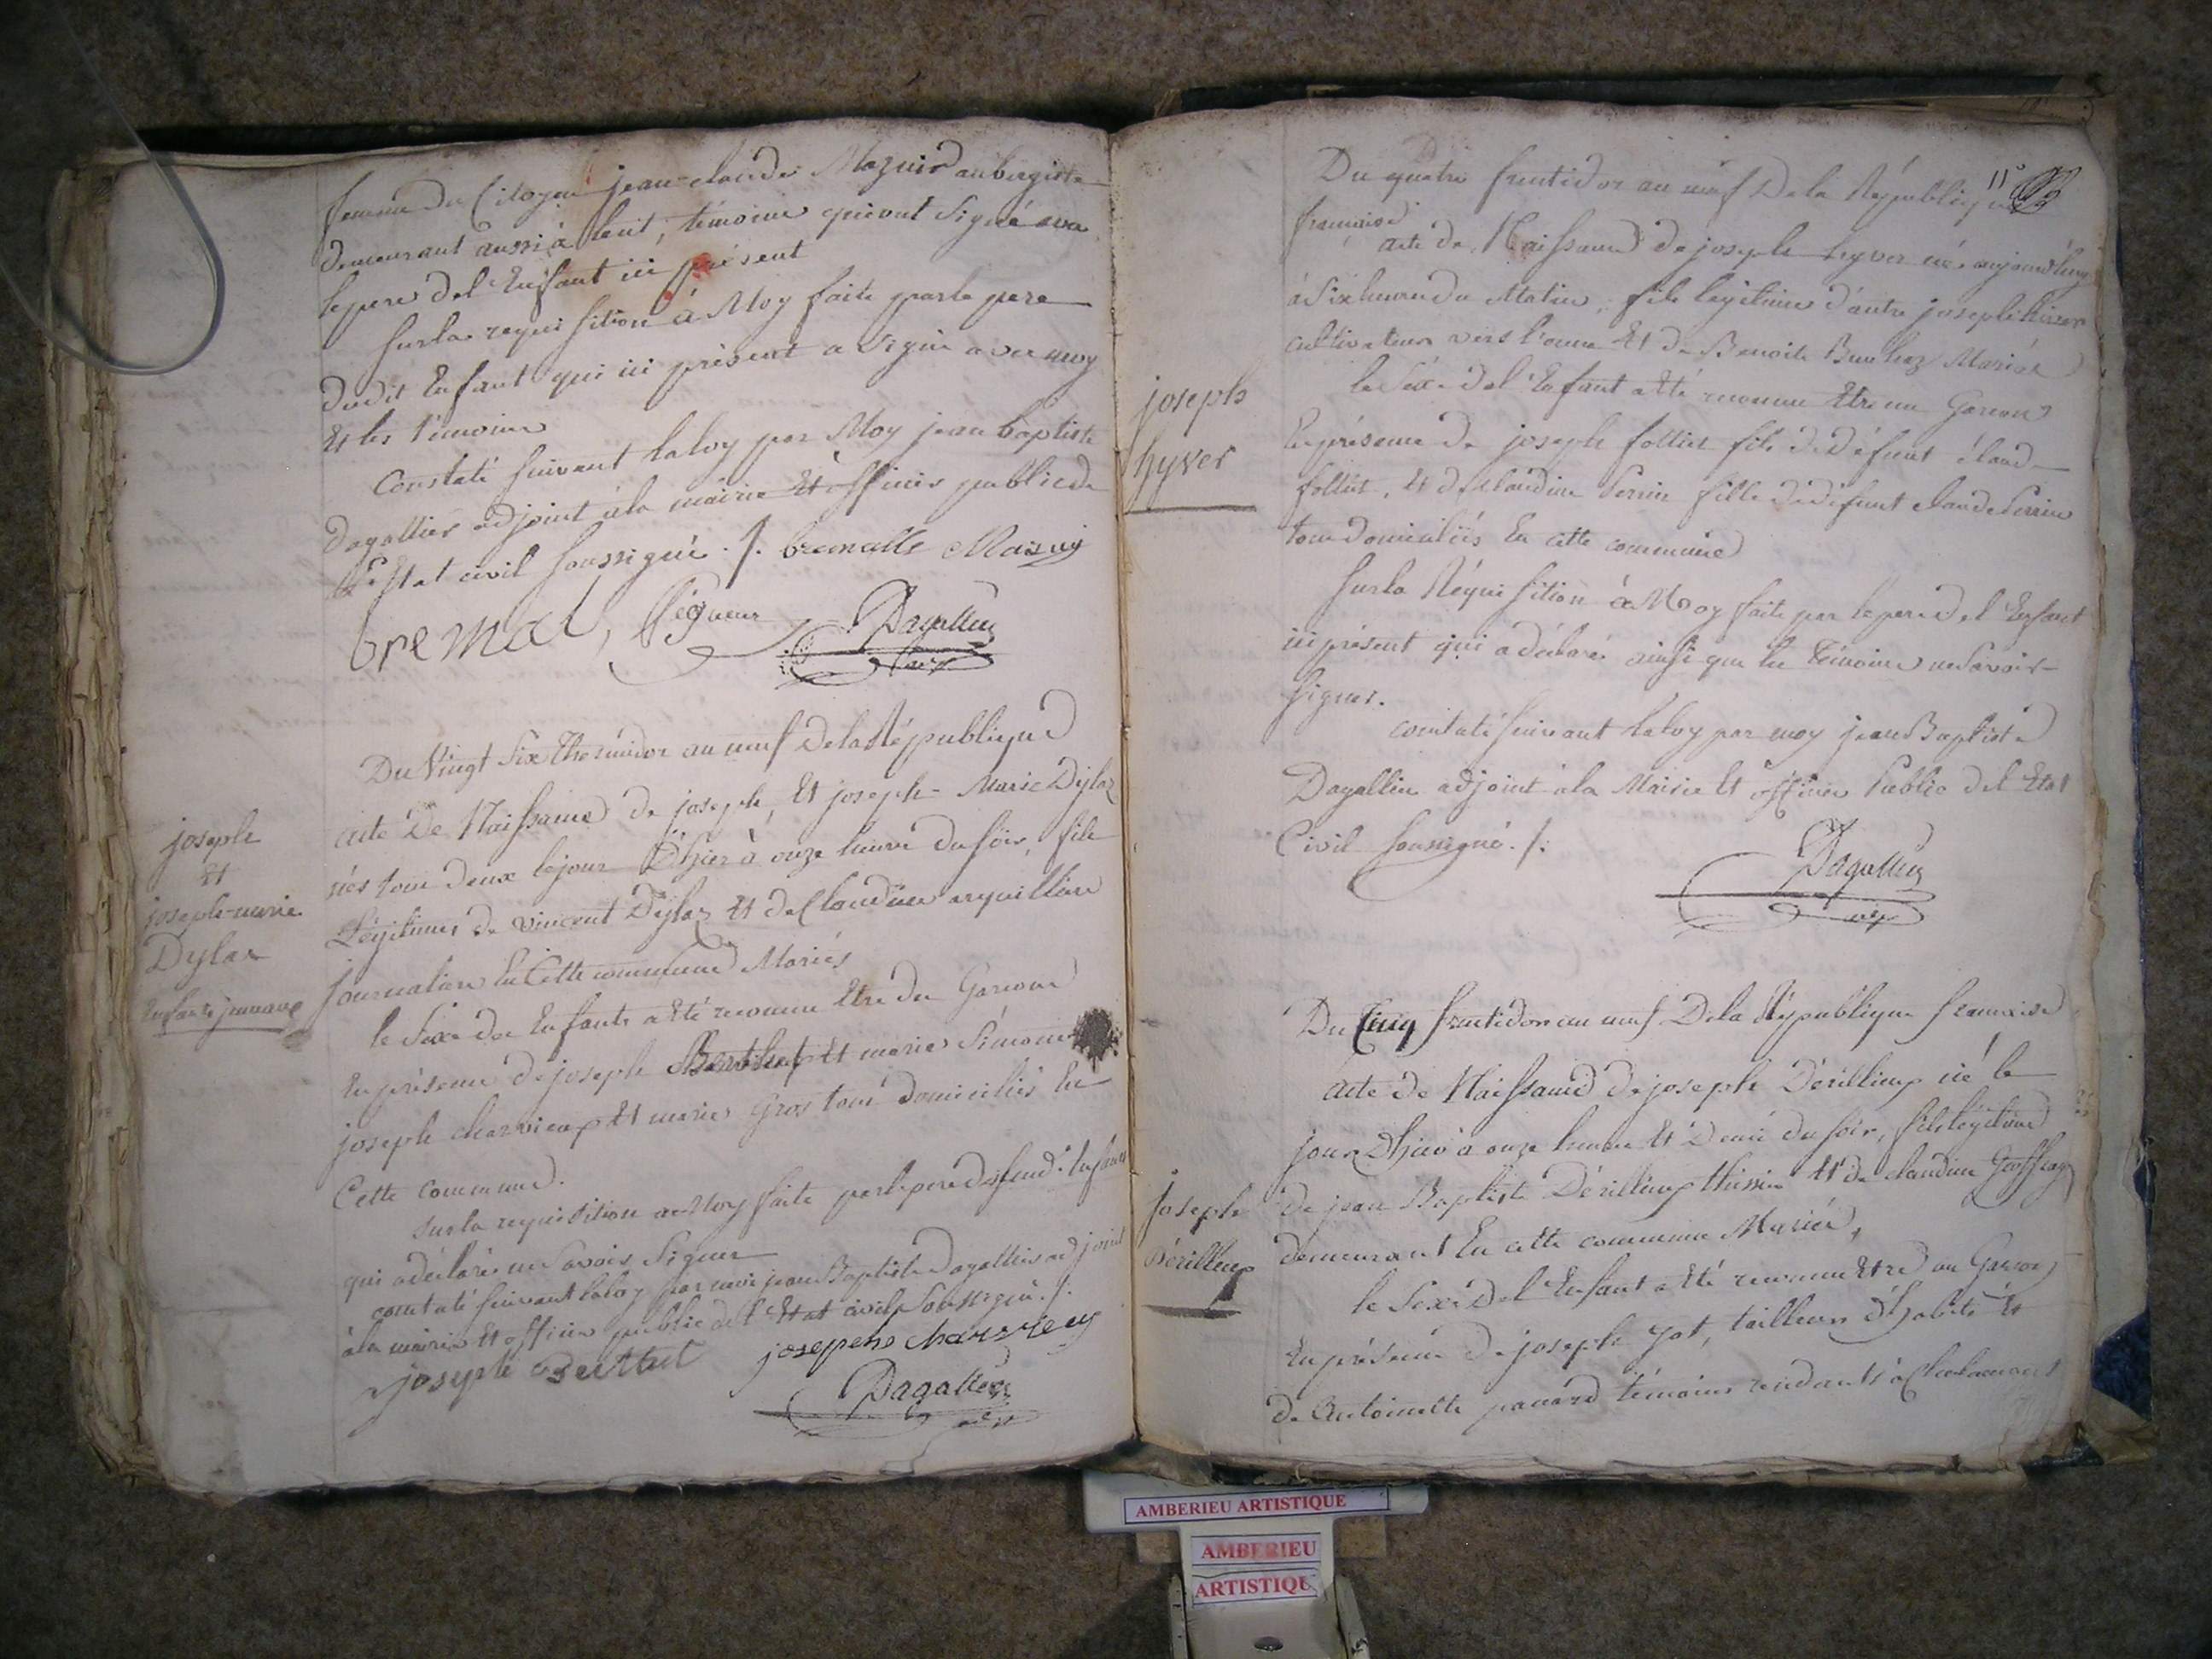 femme du Citoyen jean-claude Mazuir aubergiste
demeurant aussi à lent, témoins qui ont Signé avec
le pere del Enfant ici présent
Sur la requisition à Moy faite par le pere
dudit Enfant qui ici présent a Signé avec moy
Et les témoins
Constaté suivant la loy par Moy jean baptiste
Dagallier adjoint à la mairie Et officier public de
l'Etat civil soussigné ./. bremalle Mazuy
bremal, Dagallier
adjt
Du Vingt Six thermidor an neuf De la République
acte De Naissance de joseph, Et joseph-Marie Dylas
nés tous deux le jour D'hier à onze heures du soir, fils
Légitimes de vincent Dylas Et de Claudine
journaliers En Cette commune Mariés
le Sexe des Enfants a été reconnu Etre des Garcons
En présence de joseph Berthet Et marie Simonet
joseph charvieux Et marie Gros tous Domiciliés En
Cette commune.
Sur la requisition a Moy faite par le pere desd. Enfans
qui a déclaré ne Savoir Signer
constaté suivant la loy par moi jean Baptiste Dagallier adjoint
à la mairie Et officier public del Etat civil Soussigné ./.
joseph Berthet josepehe charvieux
Dagallier
adjt
joseph
Et
joseph-marie
Dylas
Enfants jumeaux
11e
Du quatre fructidor an neuf De la République
francaise
acte de Naissance de joseph hyver né aujourdhuy
à Six heures du Matin, fils legitime d'autre joseph hiver
cultivateur vers l'orme Et de Benoite Mariés
le Sexe del Enfant a été reconnu Etre un Garcon
En présence de joseph folliet fils de Défunt claude
follet, Et de Claudine Perrin fille de défunt claude Perrin
tous Domiciliés En cette commune
Sur la Réquisition à Moy faite par le pere del Enfant
ici présent qui a déclaré ainsi que les témoins ne Savoir
Signer.
constaté suivant la loy par moy jean Baptiste
Dagallier adjoint à la Mairie Et officier Public del Etat
Civil Soussigné ./.
Dagallier
adjt
joseph
hyver
Du Cinq fructidor an neuf De la République francaise
acte de Naissance de joseph Dérillieux né le
jour D'hier à onze heures Et Demi du soir, fils légitime
de jean Baptiste Dérillieux thissier Et de claudine Geoffray
demeurant En cette commune Mariés,
le Sexe Del Enfant a été reconnu Etre un Garcon
En présence de joseph Jat, tailleur d'habits Et
de Antoinette panard témoins residants à Chalamont
joseph
Dérillieux
AMBERIEU ARTISTIQUE
AMBERIEU
ARTISTIQU